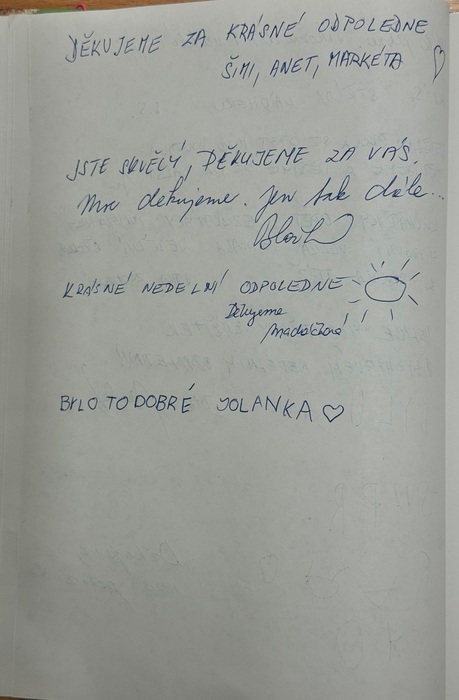 DĚKUJEME ZA KRÁSNÉ ODPOLEDNE
ŠIMI, ANET, MARKÉTA
JSTE SKVĚLÝ, DĚKUJEME ZA VÁS.
Moc děkujeme. Jen tak dále...
KRÁSNÉ NEDELNÍ ODPOLEDNE
Děkujeme
BYLO TO DOBRÉ JOLANKA